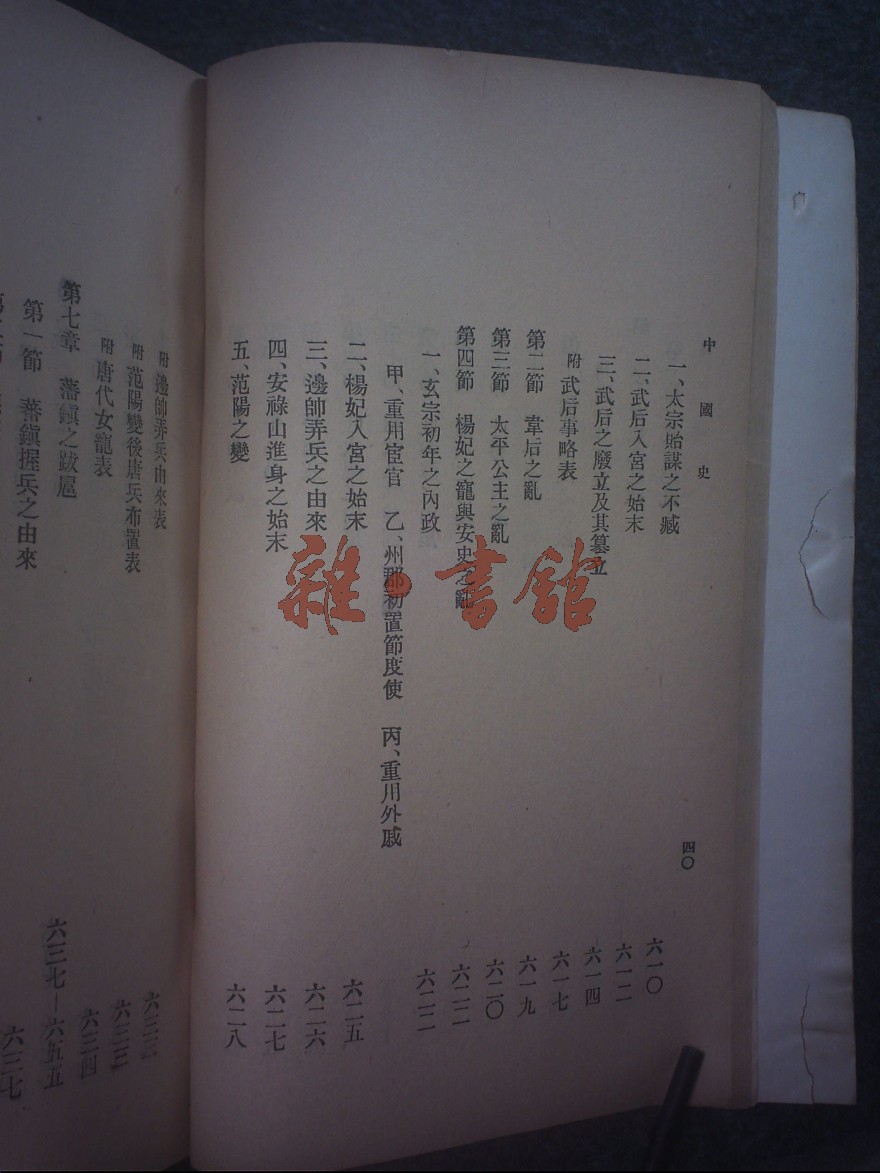 中國史
四〇
一、太宗貽謀之不臧 六一〇
二、武后入宮之始末 六一二
三、武后之廢立及其篡立 六一四
附 武后事略表 六一七
第二節 韋后之亂 六一九
第三節 太平公主之亂 六二〇
第四節 楊妃之寵與安史之亂 六二二
一、玄宗初年之內政 六二二
甲、重用宦官 乙、州郡初置節度使 丙、重用外戚
二、楊妃入宮之始末 六二五
三、邊帥弄兵之由來 六二六
四、安祿山進身之始末 六二七
五、范陽之變 六二八
附 邊帥弄兵由來表 六三二
附 范陽變後唐兵布置表 六三三
附 唐代女寵表 六三四
第七章 藩鎮之跋扈 六三七—六五五
第一節 蕃鎮握兵之由來 六三七
雜·書館